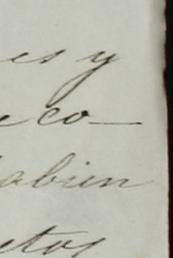 es y
e co—
abien
etos